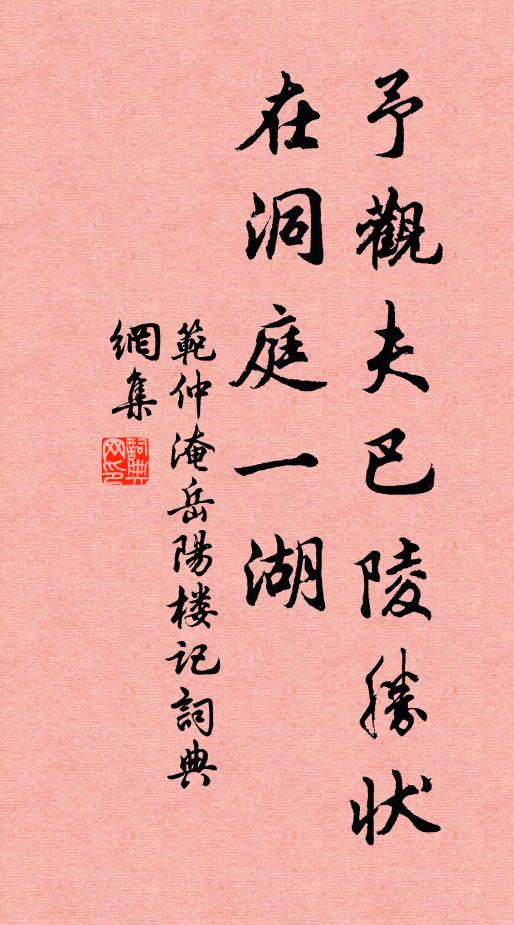 予觀夫巴陵勝状
在洞庭一湖
範仲淹岳陽楼记詞典
網集
詞典
网印